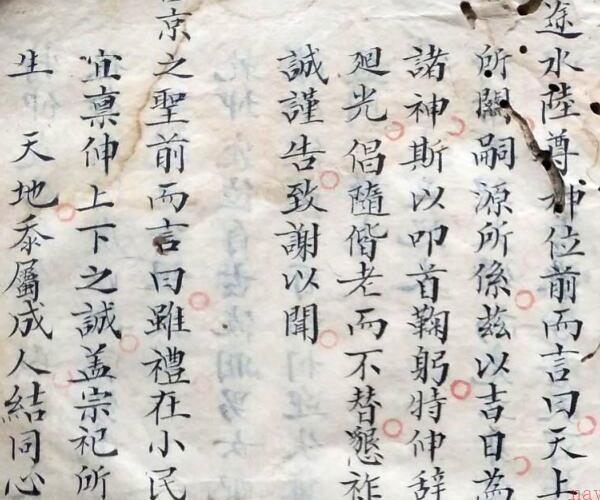 途水陸尊神位前而言曰天上
所關嗣源所係茲以吉日為
諸神斯以叩首鞠躬特伸辞
廻光倡隨偕老而不替懇祚
誠謹告致謝以聞
京之聖前而言曰雖禮在小民
宜禀伸上下之誠盖宗祀所
生天地忝屬成人結同心
nav